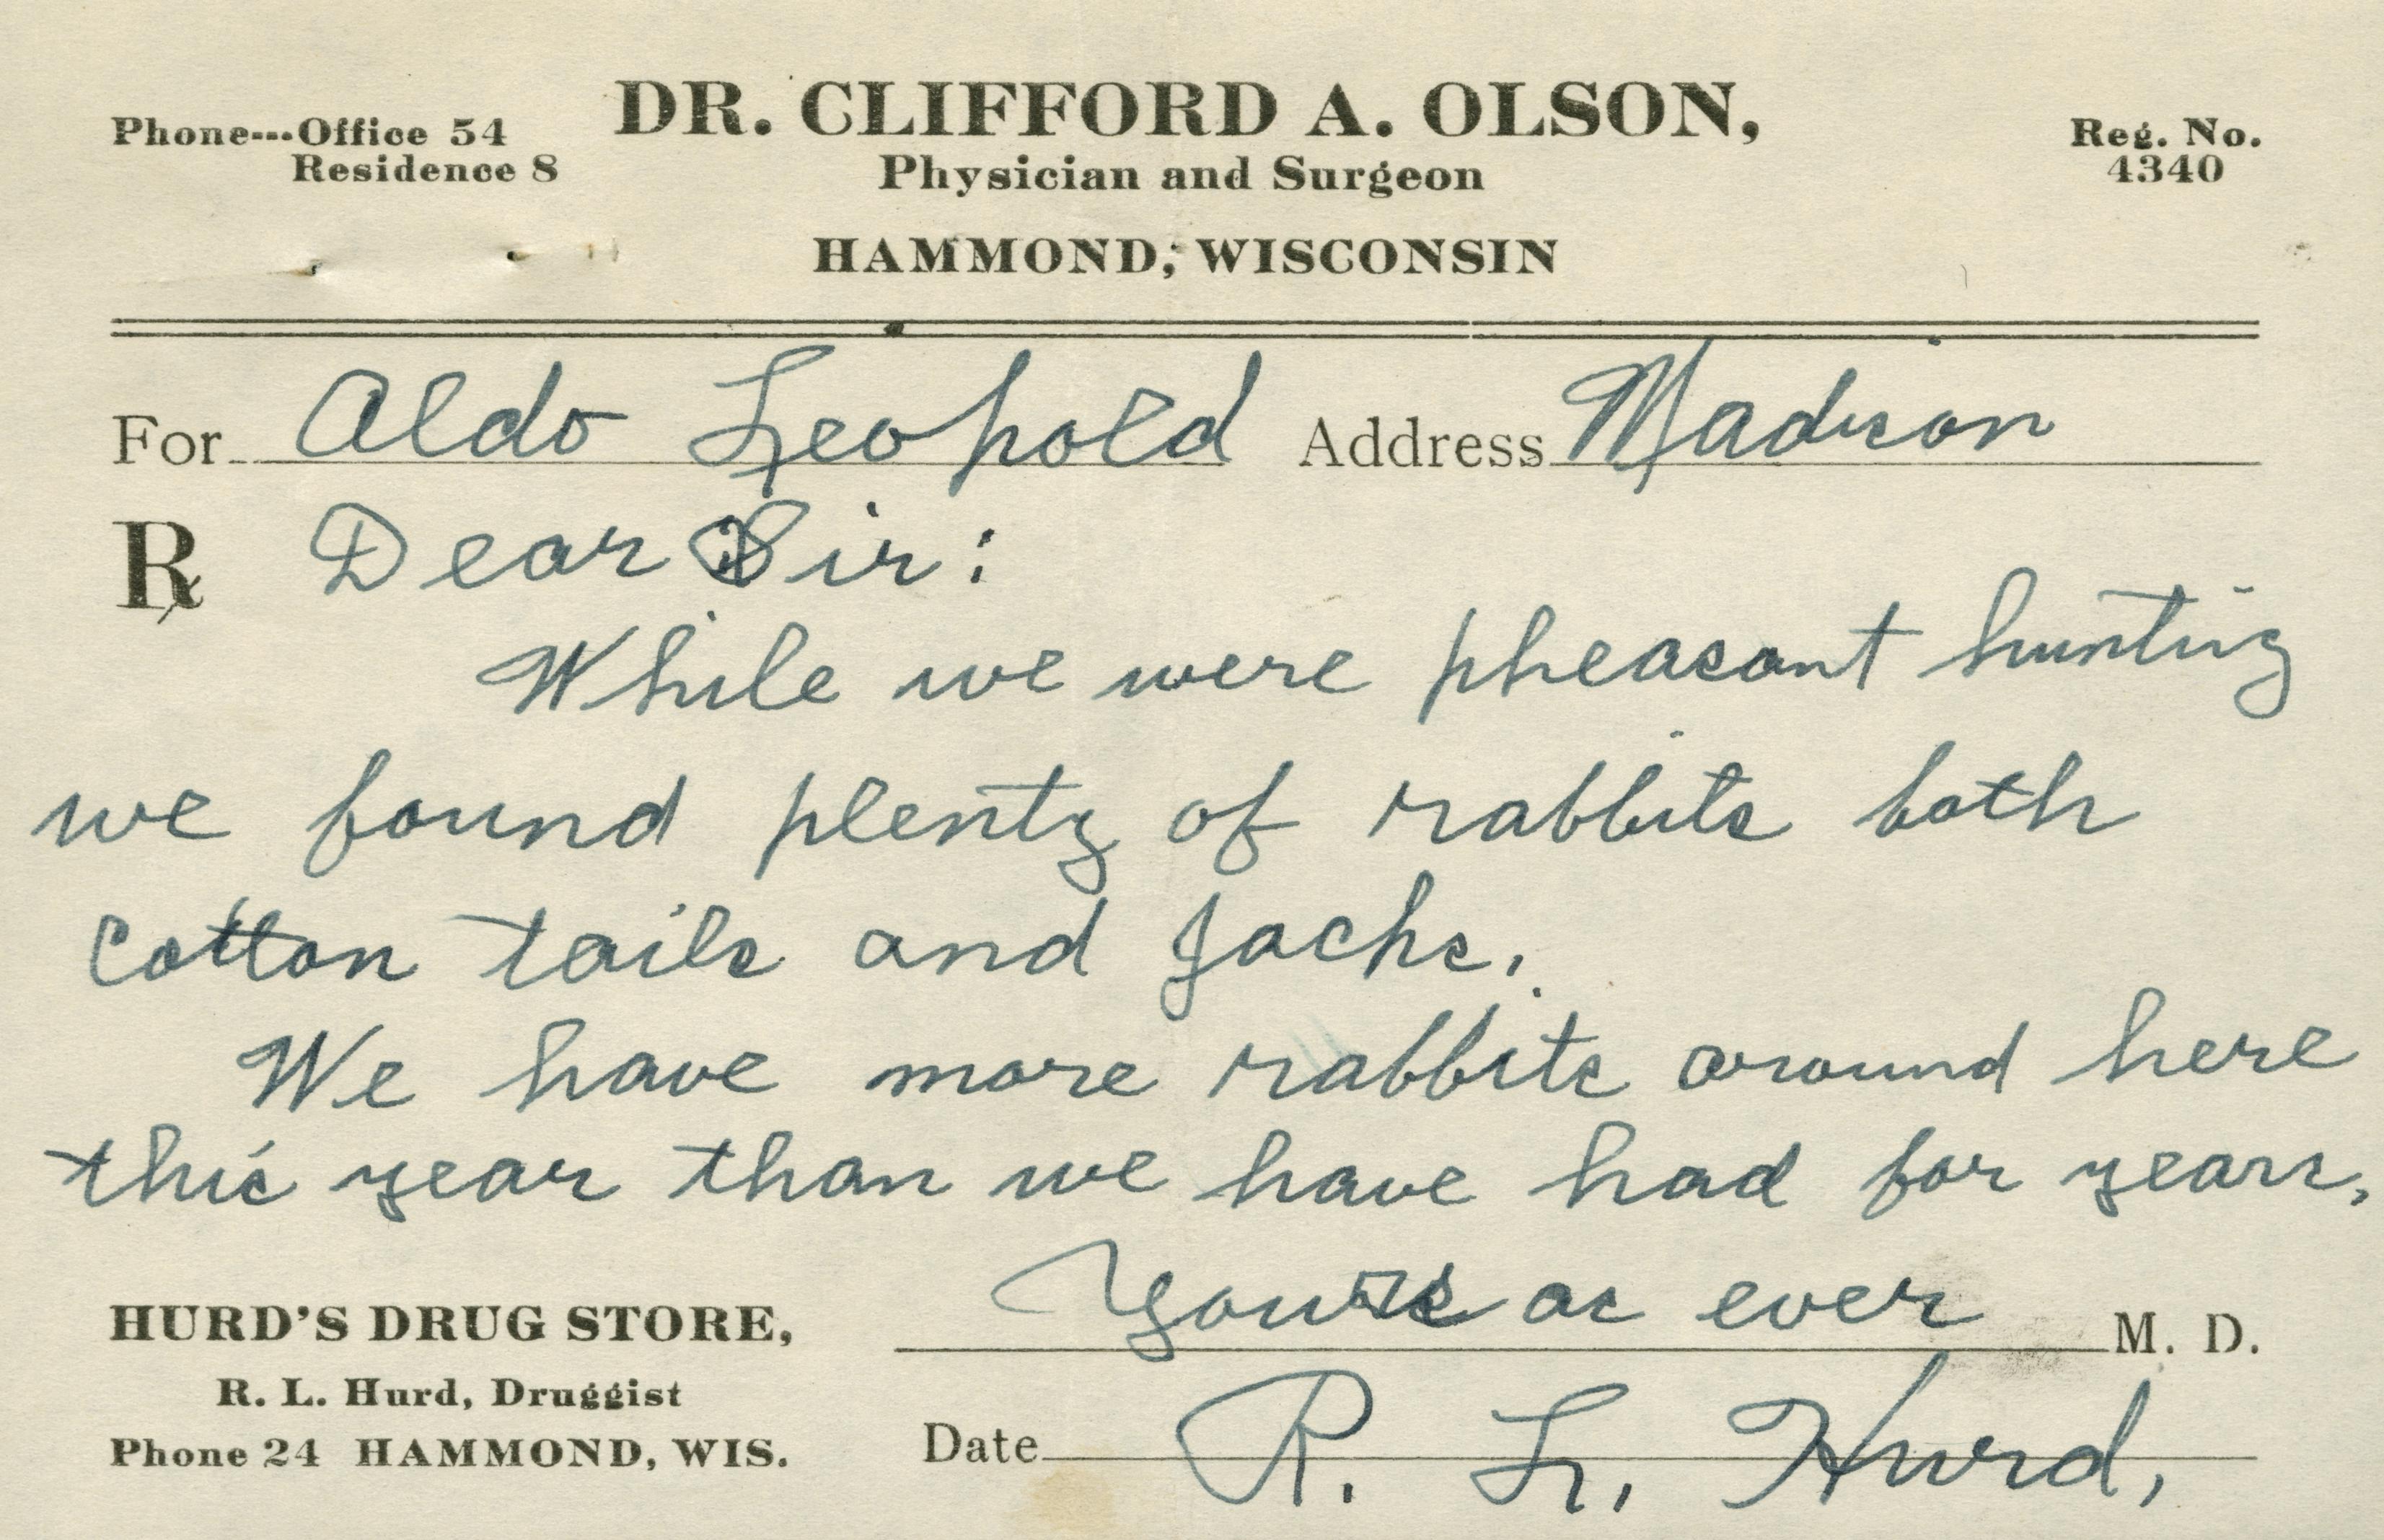 DR. CLIFFORD A. OLSON,
Phone---Office 54
Residence 8
Physician and Surgeon
HAMMOND, WISCONSIN
Reg. No.
4340
For Aldo Leopold Address Madison
℞ Dear Sir:
While we were pheasant hunting
we found plenty of rabbits both
Cotton tails and Jacks.
We have more rabbits around here
this year than we have had for years.
Yours as ever M. D.
HURD'S DRUG STORE,
R. L. Hurd, Druggist
Phone 24 HAMMOND, WIS.
Date R. L. Hurd,